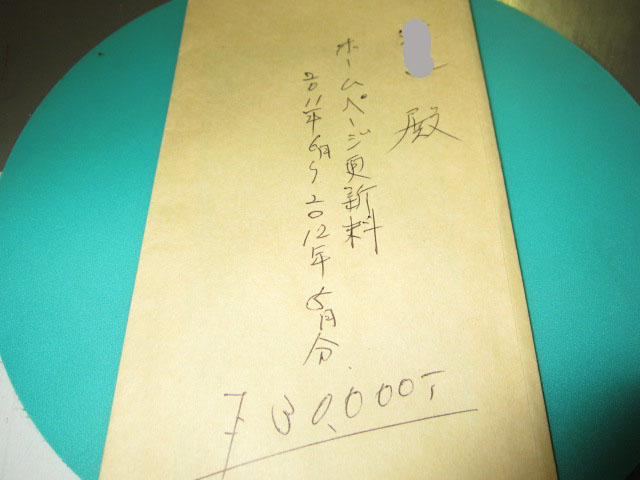 殿
ホームページ更新料
2011年6月〜2012年5月分
¥30,000-